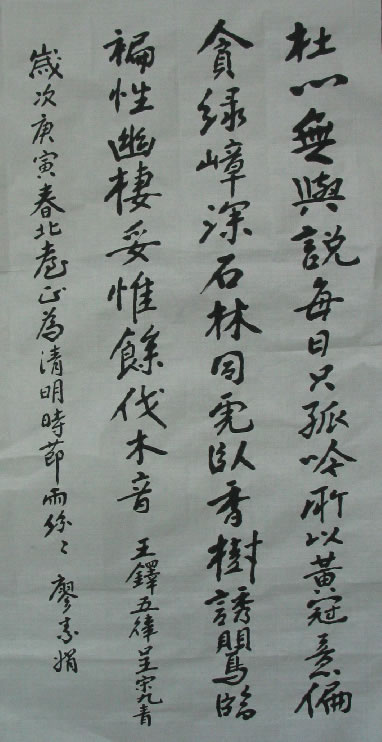 杜心無與説每日只孤吟所以黃冠意偏
貪緑嶂深石林同虎臥香樹誘鸎臨
褊性幽棲妥惟餘伐木音 王鐸五律呈宋九青
歲次庚寅春北臺正為清明時節雨紛々 廖素娟